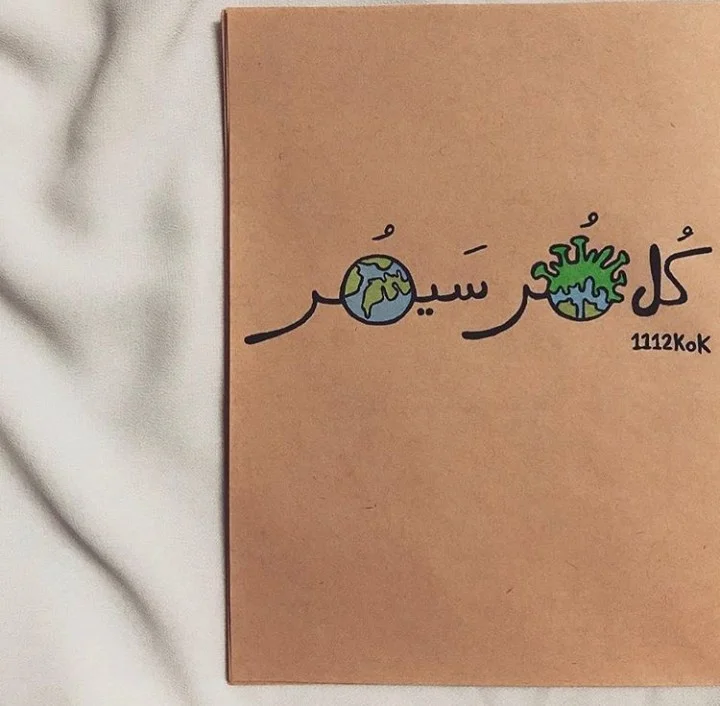 كُل مُر سَيمُر
1112KoK